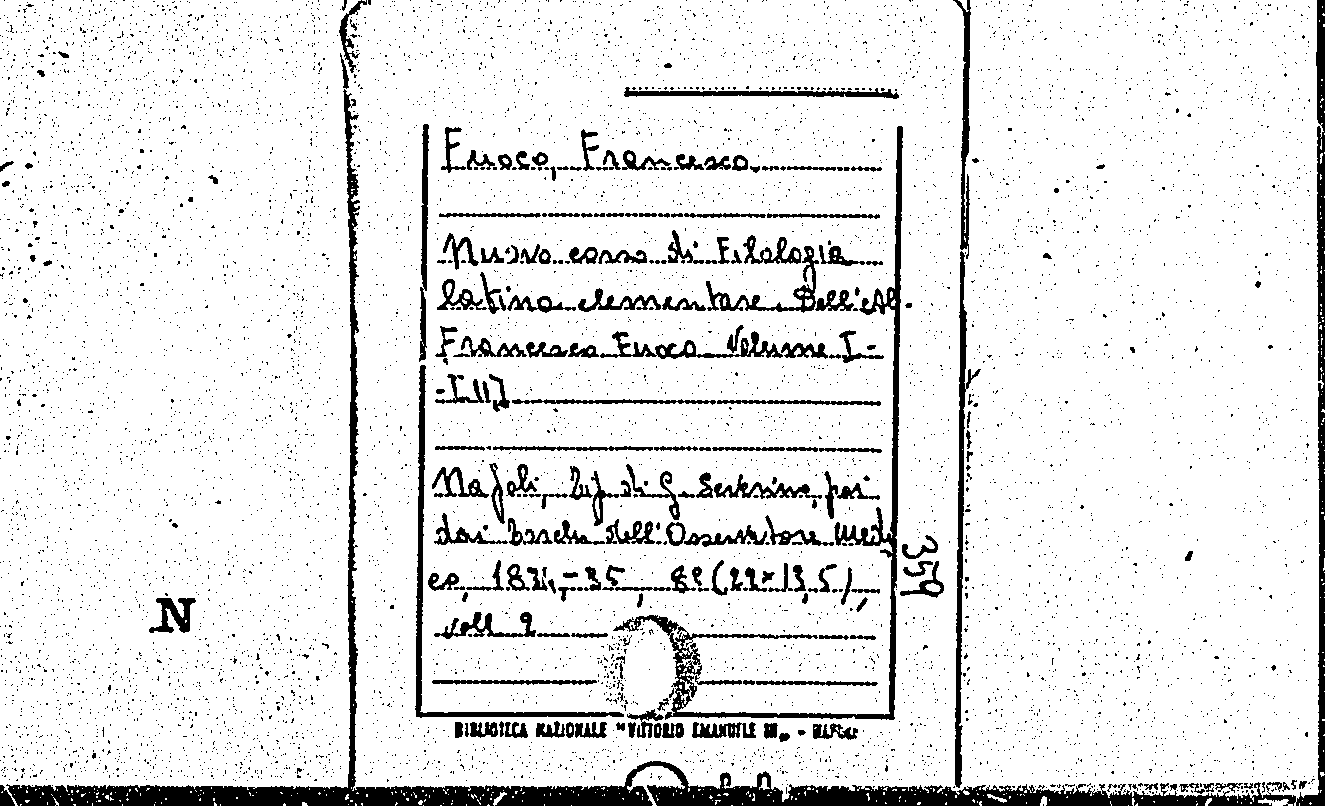 Fuoco, Francesco.
Nuovo corso di Filologia
latina elementare. Dell'Ab.
Francesco Fuoco. Volume I-
Napoli, Tip. di G. Severino, poi
dai Torchi dell'Osservatore Medi
co, 1834,-35, 8º (22×13,5),
voll 2
359
N
BIBLIOTECA NAZIONALE "VITTORIO EMANUELE III" - NAPOLI